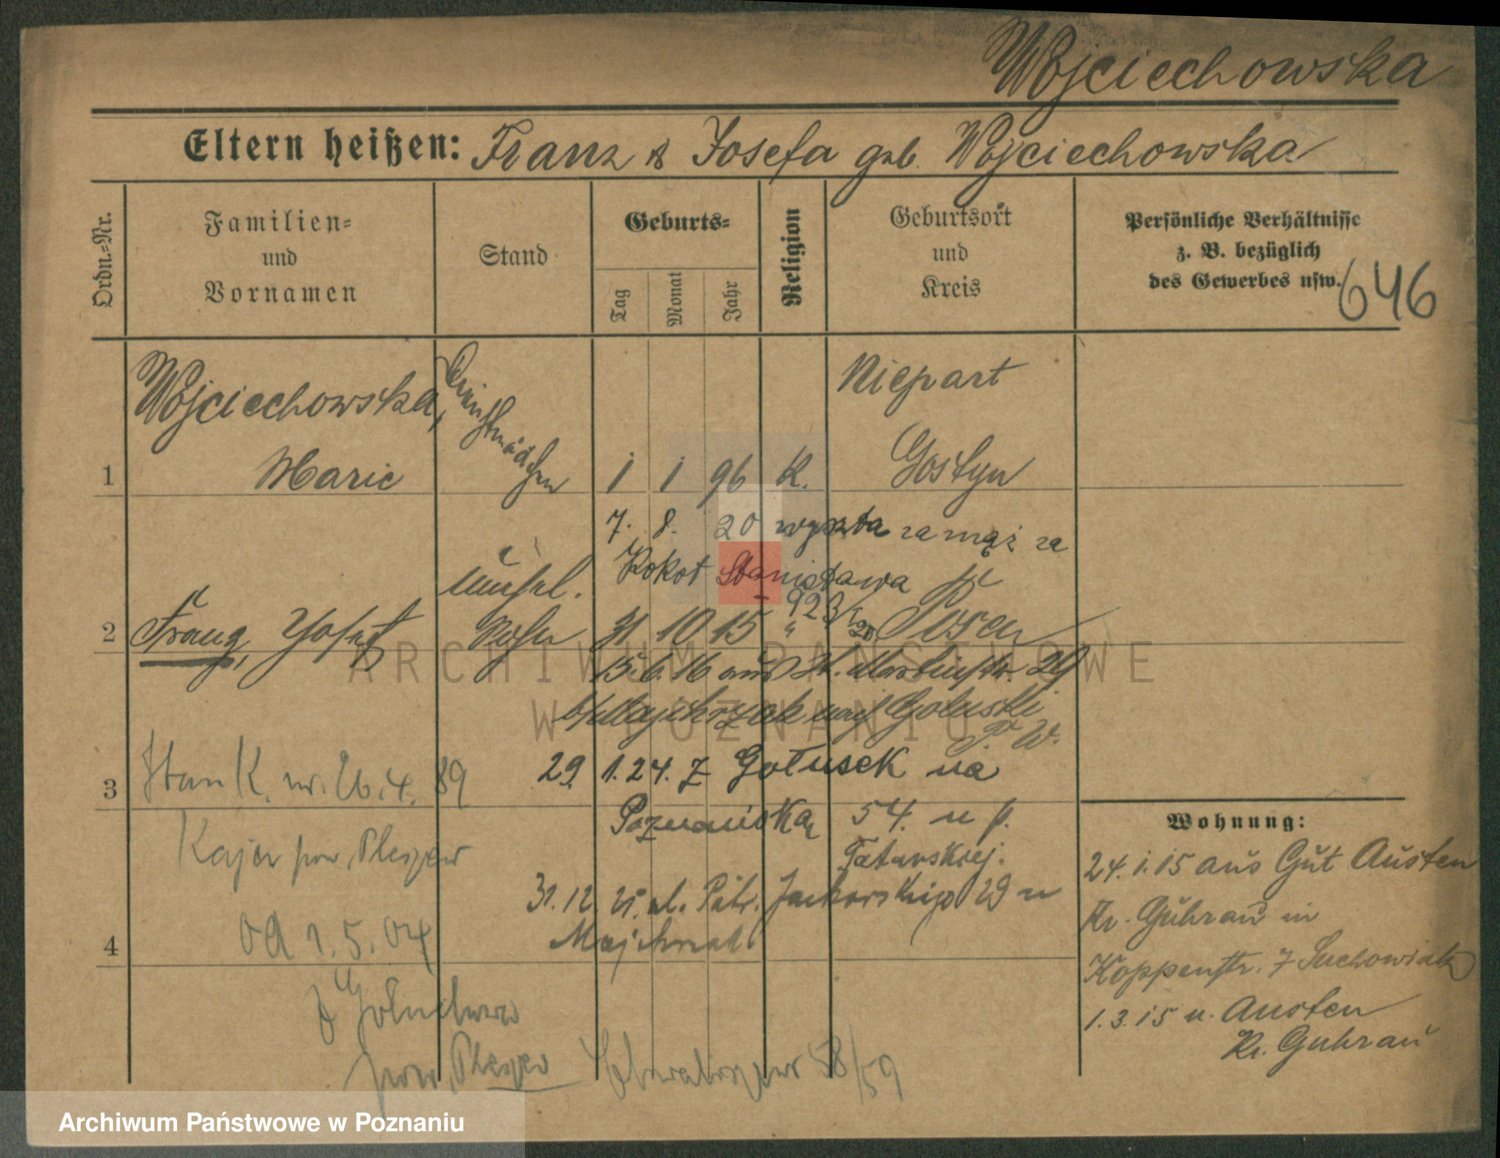 Wojciechowska
Eltern heißen: Franz & Josefa geb. Wojciechowska
Ordn.-Nr.
Familien-
und
Vornamen
Stand
Geburts-
Tag
Monat
Jahr
Religion
Geburtsort
und
Kreis
Persönliche Verhältnisse
z. B. bezüglich
des Gewerbes usw.
646
Wojciechowska,
Marie
Dienstmädchen
1
1 1 96 K.
Niepart
Gostyn
7. 8. 20 wyszła za mąż za
Kokot Stanisława
923/20
unehel.
Sohn
2
Franz, Josef
31 10 15 "
Posen
15.6.16 aus St. Martinstr. 29
b/Majchrzak nach Goluski
P. W.
3
29. 1. 24. z Gołusek na
Poznańską 54. u p.
Tatarskiej.
31. 12. 25. ul. Patr. Jackowskiego 29 u
Majchrzak
4
Stan K. nr. 26. 4. 89
pow. Pleszew
od 1. 5. 04
z Gołuchowa
pow. Pleszew
58/59
Wohnung:
24. 1. 15 aus Gut Austen
Kr. Guhrau in
Koppenstr. 7 Suchowiak
1. 3. 15 n. Austen
Kr. Guhrau
ARCHIWUM PAŃSTWOWE
W POZNANIU
Archiwum Państwowe w Poznaniu